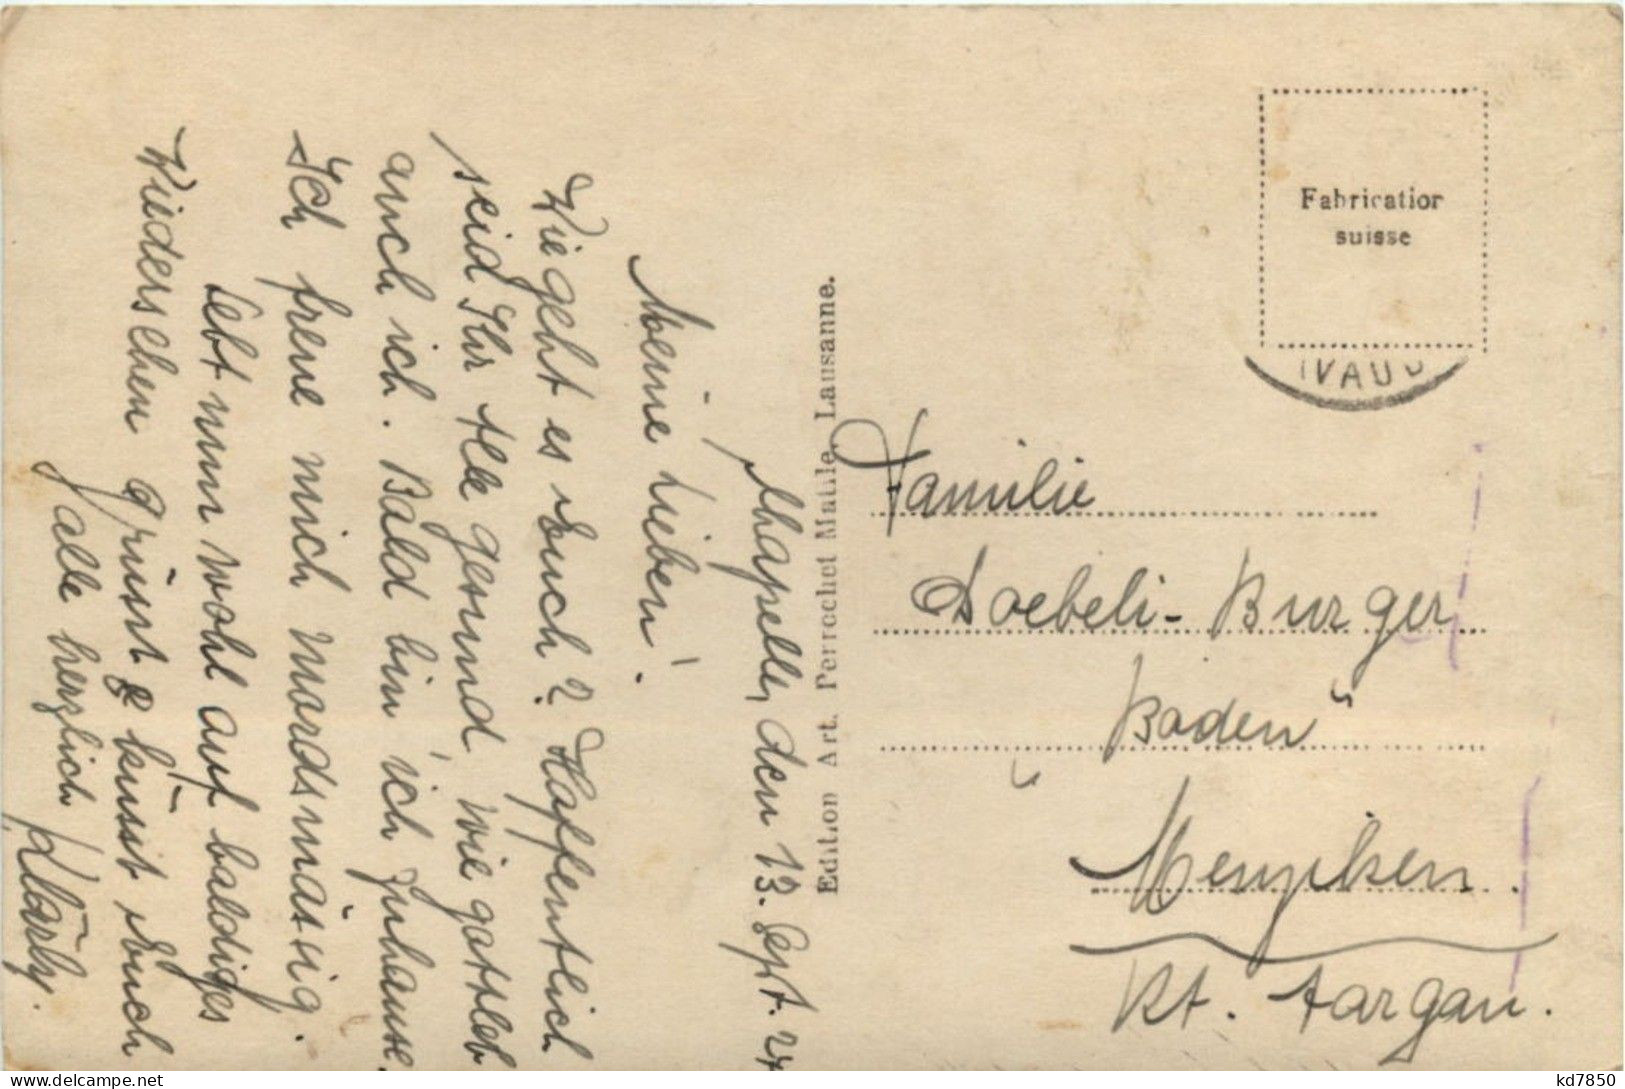 Chapelle, den 13. Sept. 24
Meine Lieben!
Wie geht es Euch? Hoffentlich
seid Ihr Alle gesund, wie gottlob
auch ich. Bald bin ich zuhause.
Ich freue mich mordsmässig.
Lebt nun wohl auf baldiges
Wiedersehen grüsst & küsst Euch
alle herzlich Klärly.
Edition Art. Perrochet Matile, Lausanne.
Fabrication
suisse
(VAUD
Familie
Doebeli-Burger
"Baden"
Menziken.
Kt. Aargau.
kd7850